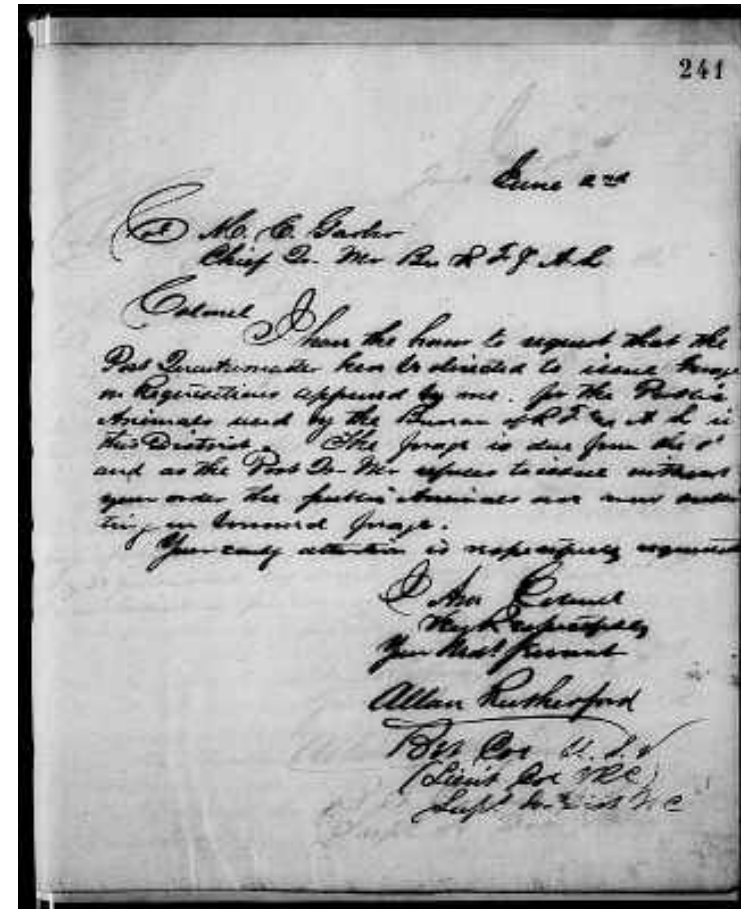 241
June 2nd
Col M. E. Garber
Chief Qr. Mr Bu R F & A L
Colonel
I have the honor to request that the
Post Quartermaster here be directed to issue forage
on Requisitions approved by me. for the Public
Animals used by the Bureau of R F & A L in
this District. The forage is due from the 1st
and as the Post Qr. Mr refuses to issue without
your order the public Animals are now subsis
ting on borrowed forage.
Your early attention is respectfully requested
I Am Colonel
Very Respectfully
Your Obdt Servant
Allan Rutherford
Bvt Col U. S. V
(Lieut Col VRC)
Supt Dist N C